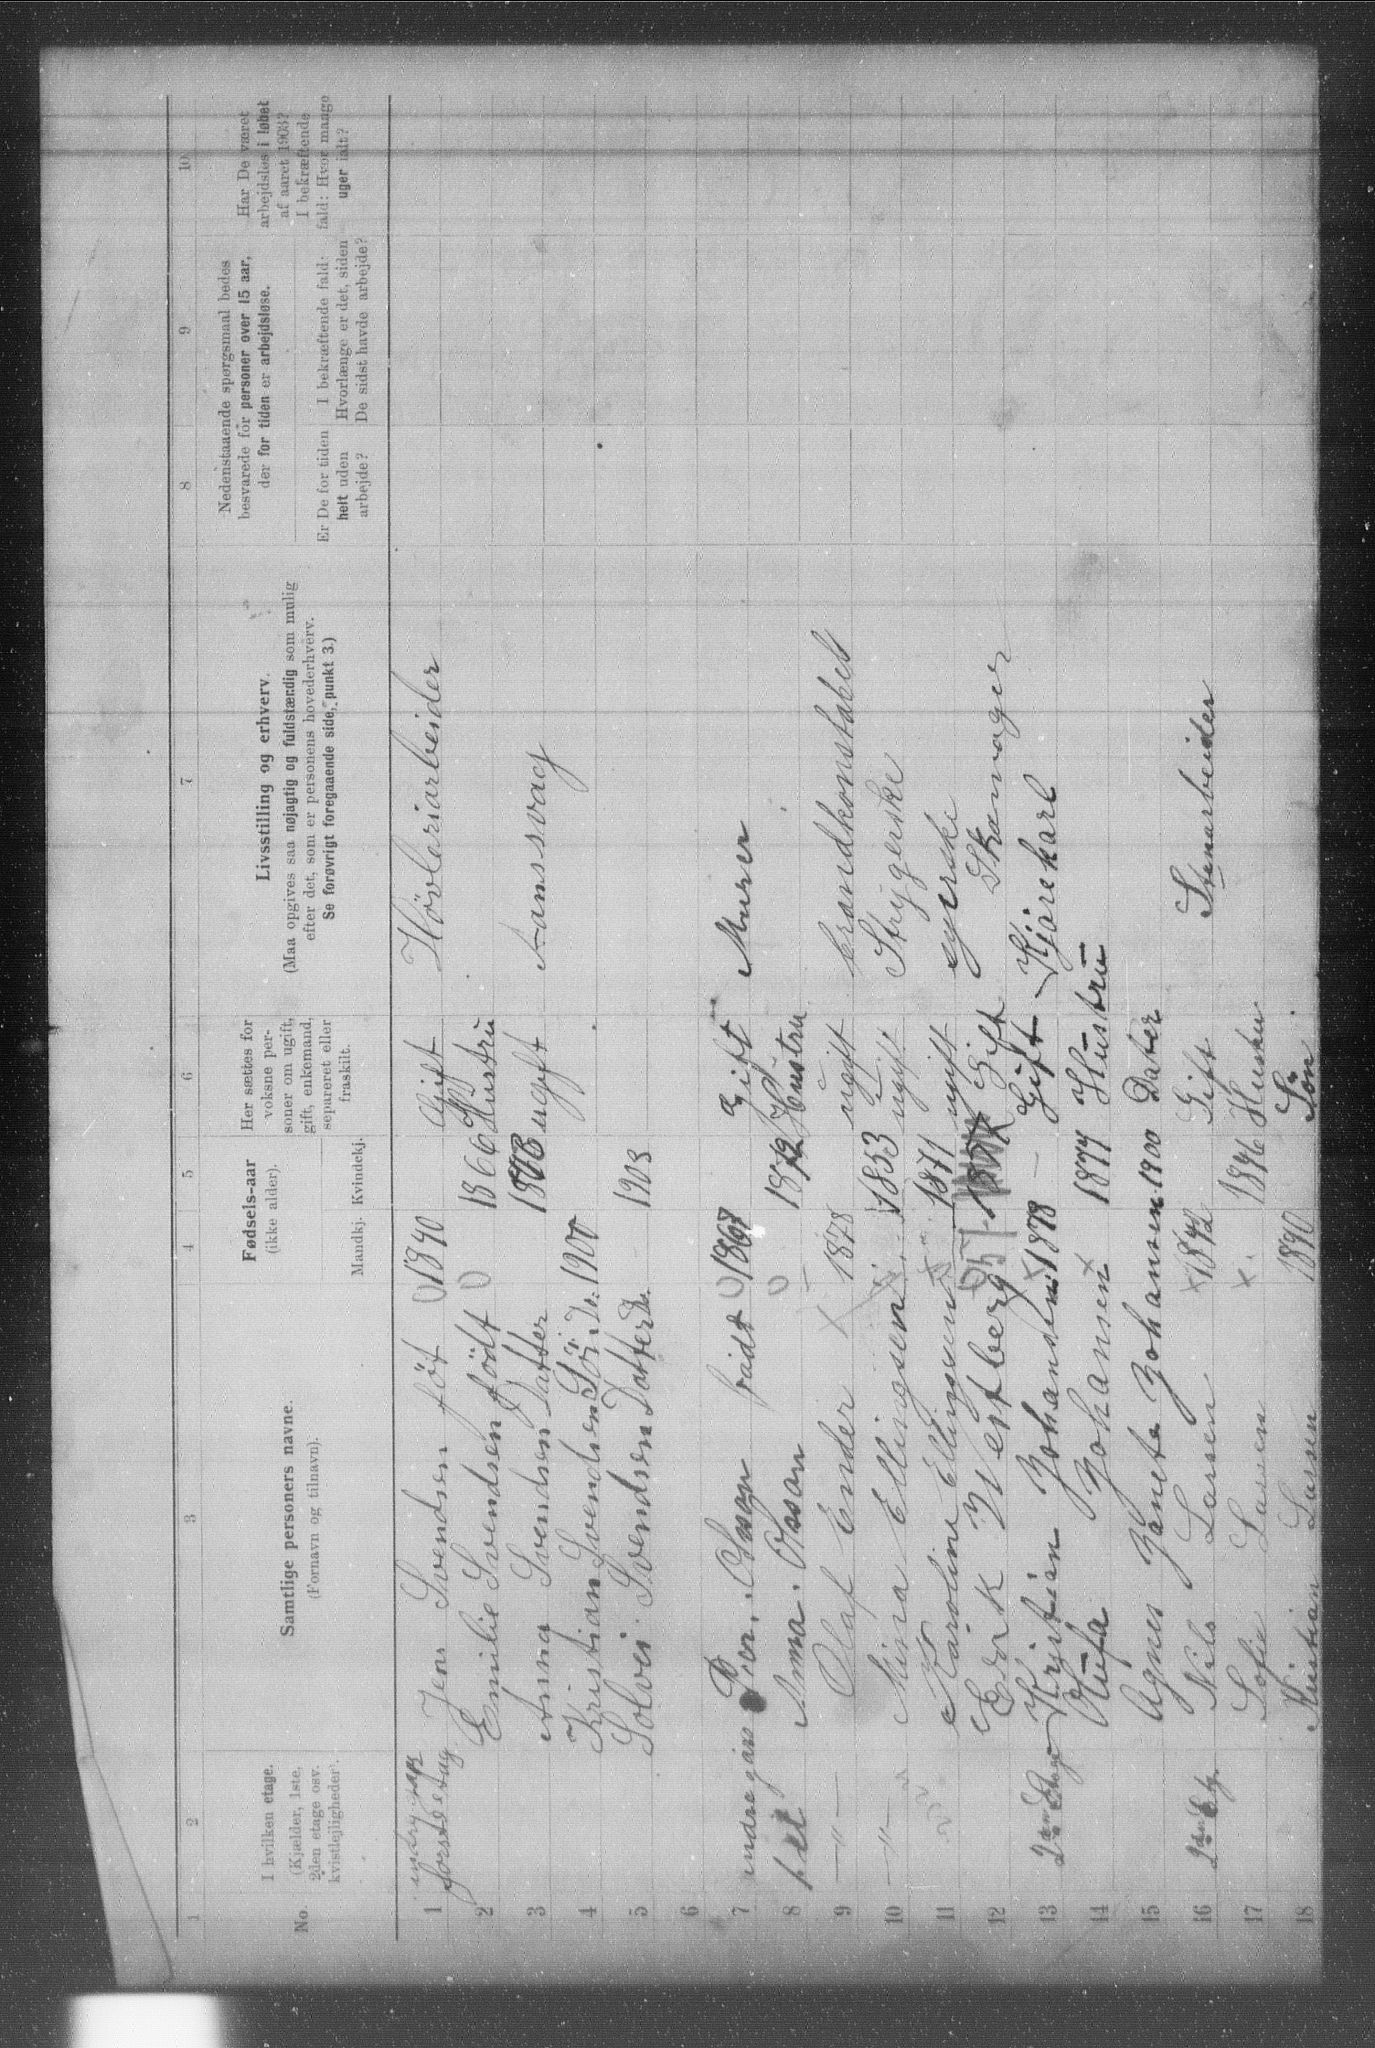 1 2 3 4 5 6 7 8 9 10
No.
I hvilken etage.
(Kjælder, 1ste,
2den etage osv.
kvistlejligheder.
Samtlige personers navne.
(Fornavn og tilnavn).
Fødsels-aar
(ikke alder).
Mandkj. Kvindekj.
Her sættes for
voksne per-
soner om ugift,
gift, enkemand,
separeret eller
fraskilt.
Livsstilling og erhverv.
(Maa opgives saa nøjagtig og fuldstændig som mulig
efter det, som er personens hovederhverv.
Se forøvrigt foregaaende side, punkt 3.)
Nedenstaaende spørgsmaal bedes
besvarede for personer over 15 aar,
der for tiden er arbejdsløse.
Er De for tiden
helt uden
arbejde?
I bekræftende fald:
Hvorlænge er det, siden
De sidst havde arbejde?
Har De været
arbejdsløs i løbet
af aaret 1903?
I bekræftende
fald: Hvor mange
uger ialt?
1 Jens Svendsen föt 1840 Gift Hövleriarbeider
2 Emilie Svendsen födt 1866 Hustru
3 Anna Svendsen Datter ugift Aanssvag
4 Kristian Svendsen Sön Do: 1900
5 Solvei Svendsen Datter Do. 1903
6
7 födt 1867 Gift Murer
8 Anna. Olsson 1872 Hustru
9 —"— Olaf Ender 1878 ugift brandkonstabel
10 —"— Mina Ellingsen 1853 ugift Strygerske
11 Karoline Ellingsen 1871 ugift syerske
12 Edv K Vestberg 57 Gift Skomager
13 2den Etage Kristian Johansen 1878 — Gift Kjørekarl
14 Johansen 1877 Hustru
15 Agnes Johansen 1900 Datter
16 2den Etg. Nils Larsen 1842 Gift Stenarbeider
17 Sofie Larsen 1846 Hustru
18 Kristian Larsen 1890 Sön